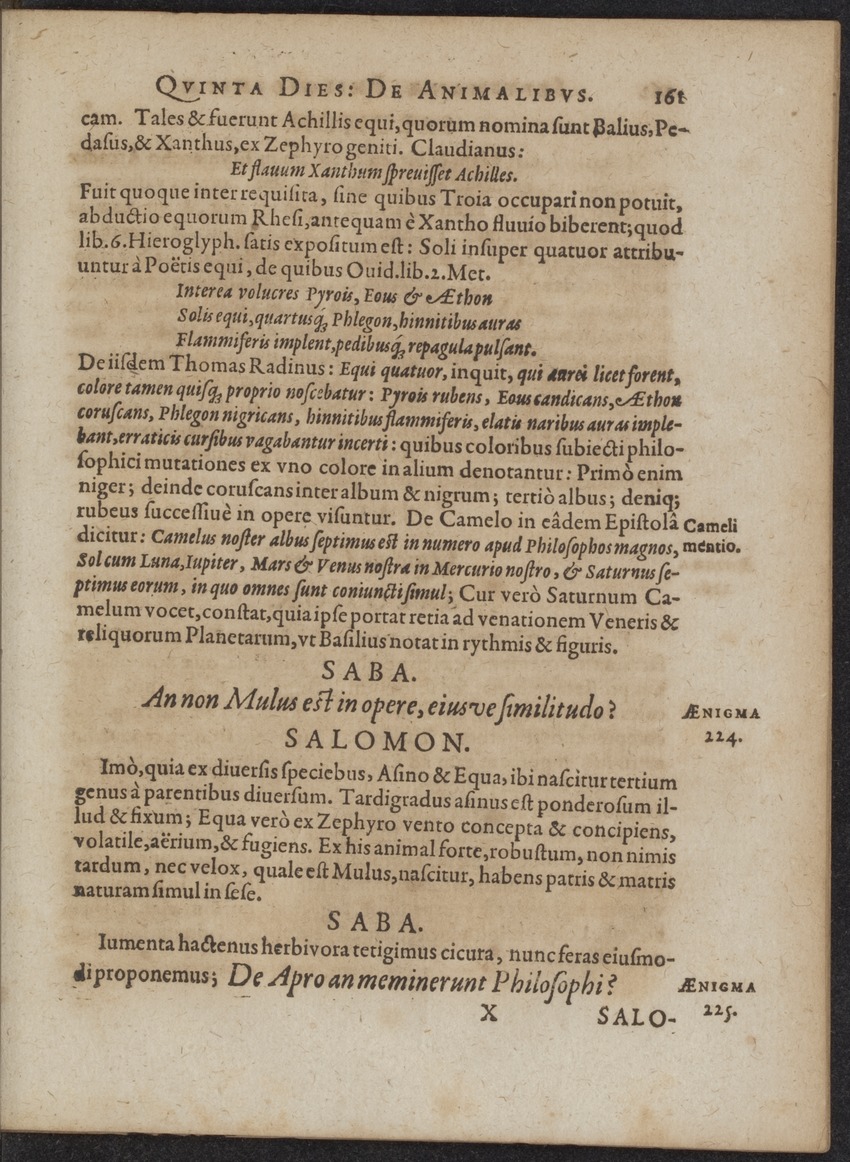 QVINTA DIES: DE ANIMALIBVS. 161
cam. Tales & fuerunt Achillis equi, quorum nomina ſunt Balius, Pe-
daſus, & Xanthus, ex Zephyro geniti. Claudianus:
Et flauum Xanthum ſpreuiſſet Achilles.
Fuit quoque inter requiſita, ſine quibus Troia occupari non potuit,
abductio equorum Rheſi, antequam è Xantho fluuio biberent; quod
lib. 6. Hieroglyph. ſatis expoſitum eſt: Soli inſuper quatuor attribu-
untur à Poëtis equi, de quibus Ouid. lib. 2. Met.
Interea volucres Pyrois, Eous & Æthon
Solis equi, quartusq́ꝫ Phlegon, hinnitibus auras
Flammiferis implent, pedibusq́ꝫ repagula pulſant.
De iiſdem Thomas Radinus: Equi quatuor, inquit, qui aurei licet forent,
colore tamen quiſqꝫ proprio noſcebatur: Pyrois rubens, Eous candicans, Æthon
coruſcans, Phlegon nigricans, hinnitibus flammiferis, elatis naribus auras imple-
bant, erraticis curſibus vagabantur incerti: quibus coloribus ſubiecti philo-
ſophici mutationes ex vno colore in alium denotantur: Primò enim
niger; deinde coruſcans inter album & nigrum; tertiò albus; deniq;
rubeus ſucceſſiuè in opere viſuntur. De Camelo in eâdem Epiſtolâ
Cameli
mentio.
dicitur: Camelus noſter albus ſeptimus eſt in numero apud Philoſophos magnos,
Sol cum Luna, Iupiter, Mars & Venus noſtra in Mercurio noſtro, & Saturnus ſe-
ptimus eorum, in quo omnes ſunt coniuncti ſimul; Cur verò Saturnum Ca-
melum vocet, conſtat, quia ipſe portat retia ad venationem Veneris &
reliquorum Planetarum, vt Baſilius notat in rythmis & figuris.
SABA.
An non Mulus eſt in opere, eiusve ſimilitudo?
ÆNIGMA
224.
SALOMON.
Imò, quia ex diuerſis ſpeciebus, Aſino & Equa, ibi naſcitur tertium
genus à parentibus diuerſum. Tardigradus aſinus eſt ponderoſum il-
lud & fixum; Equa verò ex Zephyro vento concepta & concipiens,
volatile, aërium, & fugiens. Ex his animal forte, robuſtum, non nimis
tardum, nec velox, quale eſt Mulus, naſcitur, habens patris & matris
naturam ſimul in ſeſe.
SABA.
Iumenta hactenus herbivora tetigimus cicura, nunc feras eiuſmo-
di proponemus; De Apro an meminerunt Philoſophi?
ÆNIGMA
225.
X SALO-